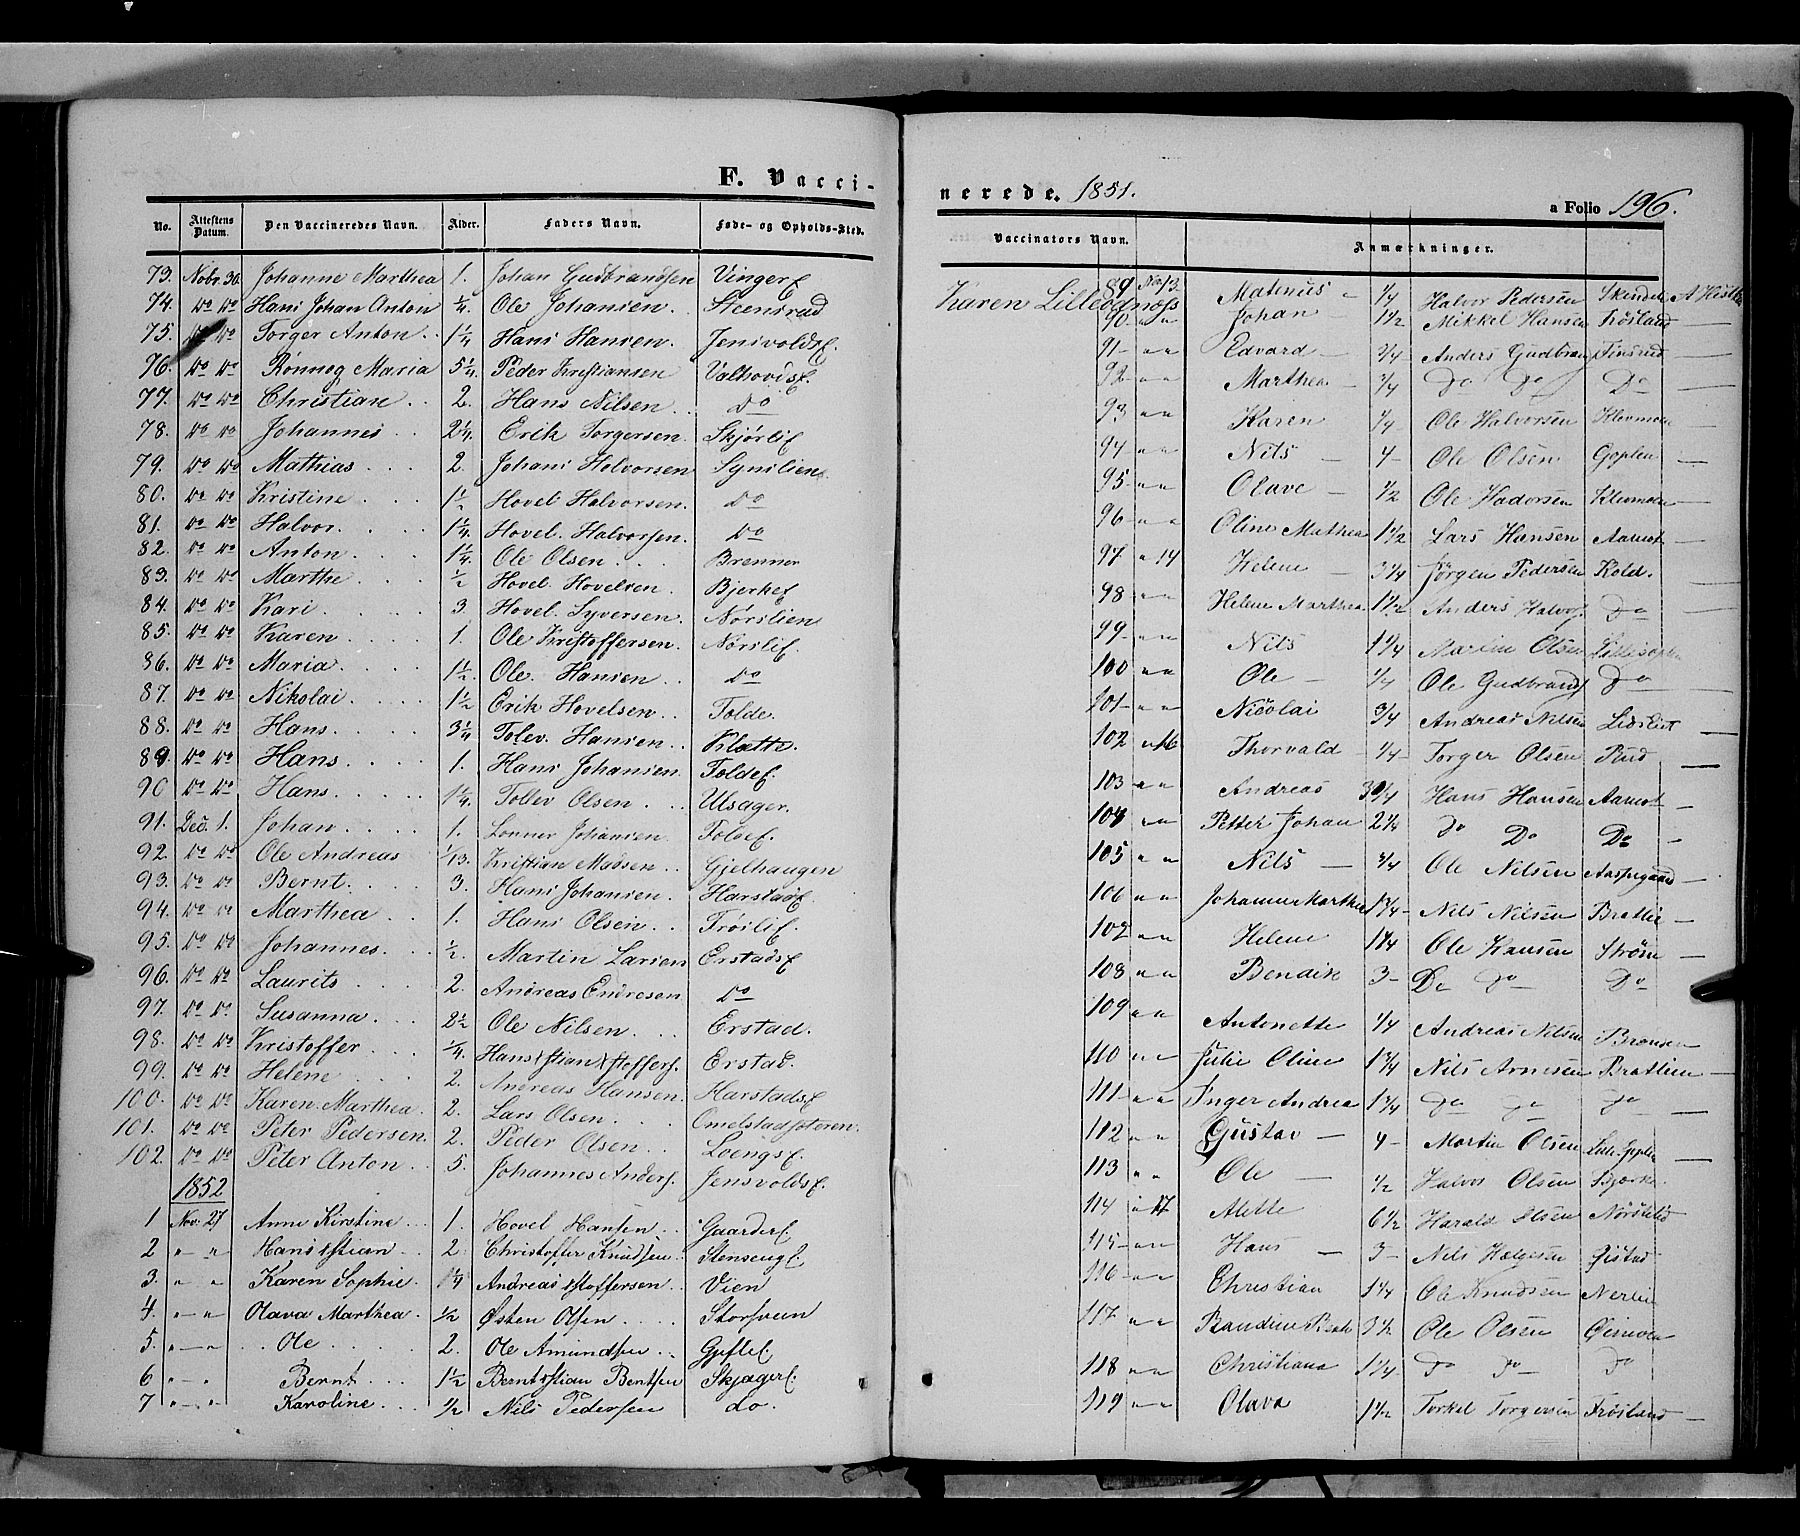 F. Vacci-
No. Attestens Datum. Den Vaccineredes Navn. Alder. Faders Navn. Føde- og Opholds-Sted.
73. Nobr. 30. Johanne Marthea 1. Johan Gudbrandsen Vingerf
74. do do Hans Johan Anton ¼. Ole Johansen. Steensrud
75. do do Torger Anton. 1¼ Hans Hansen. Jensvoldsf.
76. do do Rønnog Maria 5¼. Peder Kristiansen Valhovdsf.
77. do do Christian. 2. Hans Nilsen. do
78. do do Johannes 2¼. Erik Torgersen. Skjørlif
79. do do Mathias. 2. Johans Halvorsen Synslien
80. do do Kristine. 1½. Hovel Halvorsen. do
81. do do Halvor. 1¼. Hovel. Halvorsen. do
82. do do Anton. 1¼. Ole Olsen. Brennen
83. do do Marthe ½ Hovel. Hovelsen. Bjerkef
84. do do Kari. 3. Hovel. Syversen. Nørslien
85. do do Karen 1. Ole Kristoffersen. Nørslif.
86. do do Maria. 1½. Ole. Hansen. do
87. do do Nikolai. 1½ Erik Hovelsen. Tolde.
88. do do Hans. 3¼ Tolev. Hansen. Klætte.
89. do do Hans. 1. Hans Johansen. Toldef.
90 do do Hans. 1¼. Tollev Olsen. Ulsager.
91. Dec. 1. Johan. 1. Lonner Johansen. Toldef.
92. do do Ole Andreas 1/13. Kristian Madsen. Gjelhaugen
93. do do Bernt. 3. Hans Johansen. Harstadf.
94. do do Marthea 1. Hans Olsen. Trøslif.
95. do do Johannes. ½. Martin Larsen Erstadsf
96. do do Laurits. 2. Andreas Endresen. do
97. do do Susanna. 2½ Ole Nilsen. Erstad.
98. do do Kristoffer ¼. Hans Xstian Xstoffers. Erstad.
99. do do Helene 2. Andreas Hansen. Harstadsf
100. do do Karen. Marthea. 2. Lars Olsen. Omelstadfoteren.
101. do do Peter Pedersen. 2. Peder Olsen. Loengsf.
102. do do Peter Anton. 5. Johannes Anders. Jensvoldsf.
1852
1 Nov. 27 Anne Kirstine 1. Hovel Hansen Gaarderf
2 " " Hans Xstian 2. Christoffer Knudsen Stensengf
3. " " Karen Sophie. 1¼ Andreas Xstoffersen. Vien
4. " " Olava Marthea. ½ Østen Olsen. Storsveen
5. " " Ole 2. Ole Amundsen Gyftef
6 " " Bernt 1½ Bernt Xstian Berntsen Skjagerf.
7 " " Karoline ½ Nils Pedersen do.
nerede. 1851.
a Folio 196.
Vaccinators Navn. Anmærkninger.
Karen Lilleodnæss
89 Nov. 13 Mathæus ¼ Halvor Pedersen
90 " " Johan 1½ Mikkel Hansen Frøsland
91 " " Edvard ¾ Anders Gudbrands Finsrud
92 " " Marthea ¾ do do Do
93 " " Karen ¼ Ole Halvorsen Klevmoen
94 " " Nils 4 Ole Olsen Goplen
95 " " Olave ½ Ole Hadersen Klevmoen
96 " " Oline Mathea 1½ Lars Hansen Aamot
97 " 14 Helene 3¼ Jørgen Pedersen Kold.
98 " " Helene Marthea 1½ Anders Halvors do
99 " " Nils 1¼ Martin Olsen Lillegoplen
100 " " Ole ¼ Ole Gudbrands do
101 " " Nicolai ¾ Andreas Nilsen
102 " 16 Thorvald ¼ Torger Olsen Rud
103 " " Andreas 3¼ Hans Hansen Aamot
104 " " Petter Johan 2¼ do Do Do
105 " " Nils ¾ Ole Nilsen Aaspegaard
106 " " Johanne Marthea 1¾ Nils Nilsen Brattlie
107 " " Helene 1¼ Ole Hansen Strøm
108 " " Bendik 3 Do do Do
109 " " Antonette ¼ Andreas Nilsen Brænsen
110 " " Julie Oline 1¾ Nils Arnesen Brattlien
111 " " Inger Andrea 1¾ do do do
112 " " Gustav 4 Martin Olsen Lille Goplen
113 " " Ole ½ Halvor Olsen Bjerke
114 " 17 Alette 6½ Harald Olsen Nørstelid
115 " " Hans 3 Nils Helgesen Øistad
116 " " Christian 1¼ Ole Knudsen Nerlien
117 " " 3½ Ole Olsen Øismoen
118 " " Christiane 1¼ do do do
119 " " Olava 1½ Torkel Torgersen Frøsland